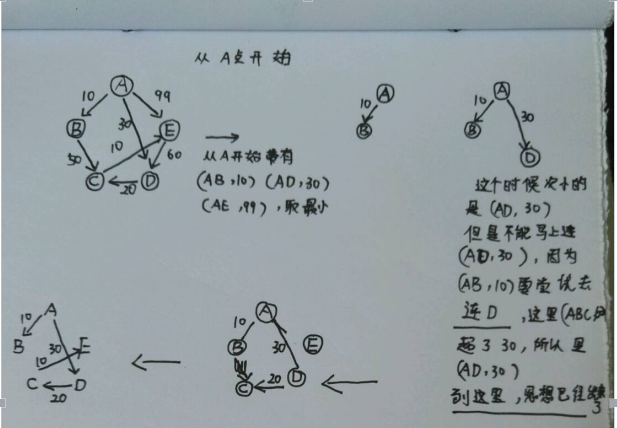 从A点开始
A
10
99
B
30
E
50
10
60
C
20
D
从A开始带有
(AB,10) (AD,30)
(AE,99),取最小
A
10
B
A
10
30
B
D
这个时候次小的
是(AD,30)
但是不能马上连
(AD,30),因为
(AB,10)要尝试去
连D,这里(ABC
超30,所以是
(AD,30)
到这里,思想已经
3
A
10
B
30
E
C
20
D
A
10
B
30
E
10
C
20
D